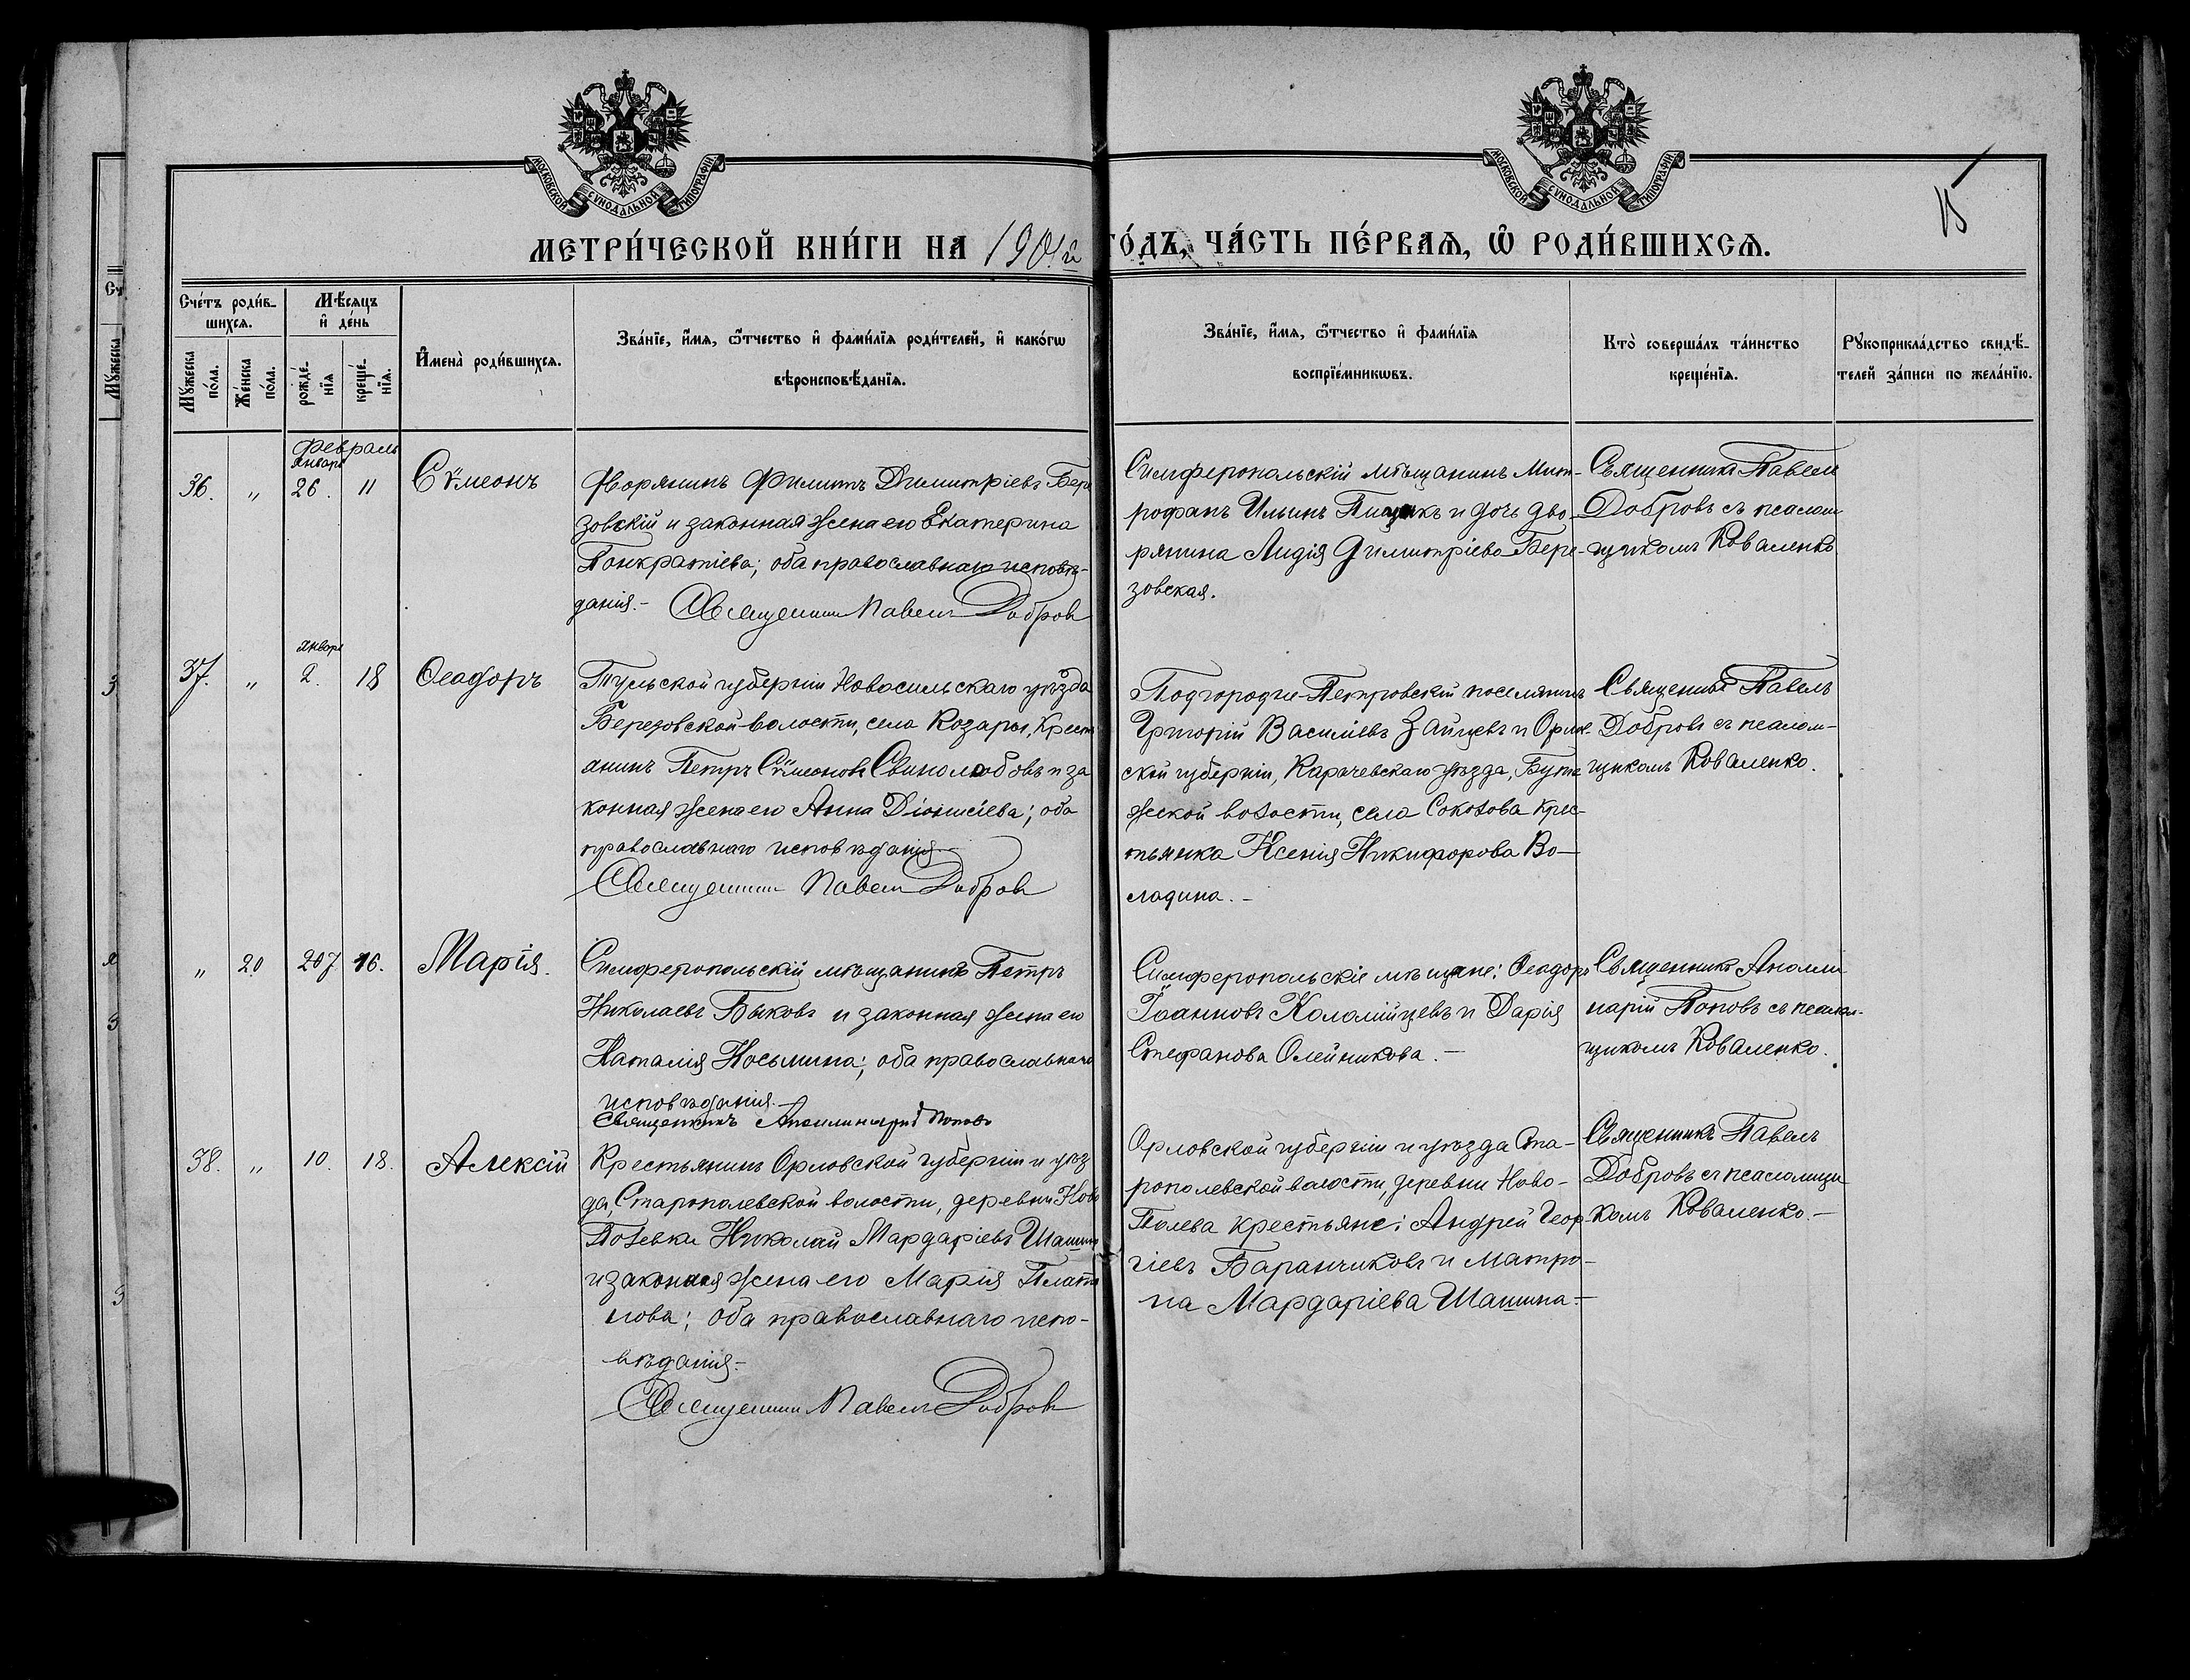 МОСКОВСКОЙ СѴНОДАЛЬНОЙ ТИПОГРАФІИ
МОСКОВСКОЙ СѴНОДАЛЬНОЙ ТИПОГРАФІИ
15
МЕТРИ́ЧЕСКОЙ КНИ́ГИ НА 1901й ГО́ДЪ, ЧА́СТЬ ПЕ́РВАЯ, Ѡ РОДИ́ВШИХСЯ.
Счéтъ роди́в-
шихся.
Мѣ́сяцъ
и дéнь
Мꙋ́жеска
по́ла.
Жéнска
по́ла.
рождé-
нїя
крещé-
нїя.
И҆мена̀ роди́вшихся.
Звáнїе, и҆́мя, ѻ҆́тчество и҆ фами́лїя роди́телей, и҆ какóгѡ
вѣроисповѣ́данїя.
Звáнїе, и҆́мя, ѻ҆́тчество и҆ фами́лїя
воспрїéмникѡвъ.
Ктò совершáлъ тáинство
крещéнїя.
Рꙋкоприклáдство свидѣ́-
телей зáписи по желáнїю.
Февраль
Января
36. " 26. 11
Сѵмеонъ
Дворянинъ Филиппъ Димитріевъ Бере
зовскій и законная жена его Екатерина
Панкратіева; оба православнаго исповѣ-
данія.- Священникъ Павелъ Добровъ
Симферопольскій мѣщанинъ Мит-
рофанъ Ильинъ и дочь дво-
рянина Лидія Димитріева Бере-
зовская.
Священникъ Павелъ
Добровъ съ псалом
щикомъ Коваленко
января
37. " 2. 18
Ѳеодоръ
Тульской губерніи Новосильскаго уѣзда
Березовской волости, села Козарья, Крест
янинъ Петръ Сѵмеоновъ Свинолобовъ и за
конная жена его Анна Діонисіева; оба
православнаго исповѣданія.-
Священникъ Павелъ Добровъ
Подгородне-Петровскій поселянинъ
Григорій Василіевъ Зайцевъ и Орлов-
ской губерніи, Карачевскаго уѣзда,
жской волости, села Соколова крес-
тьянка Ксенія Никифорова Во-
ладина.-
Священникъ Павелъ
Добровъ съ псалом-
щикомъ Коваленко.
" 20 207 16.
Марія.
Симферопольскій мѣщанинъ Петръ
Николаевъ Быковъ и законная жена его
Наталія Косьмина; оба православнаго
исповѣданія.-
Священникъ Аполлинарій Поповъ
Симферопольскіе мѣщане: Ѳеодоръ
Іоанновъ Коломійцевъ и Дарія
Стефанова Олейникова.-
Священникъ Аполли
нарій Поповъ съ псалом-
щикомъ Коваленко.
38. " 10. 18.
Алексій
Крестьянинъ Орловской губерніи и уѣз
да, Старополевской волости, деревни Ново
Полевки Николай Мардаріевъ Шашинъ
и законная жена его Марія Плато
нова; оба православнаго испо-
вѣданія.-
Священникъ Павелъ Добровъ
Орловской губерніи и уѣзда Ста-
рополевской волости, деревни Ново-
Полева крестьяне: Андрей Геор
гіевъ Баранчиковъ и Матро-
на Мардаріева Шашина.-
Священникъ Павелъ
Добровъ съ псаломщи
комъ Коваленко.-